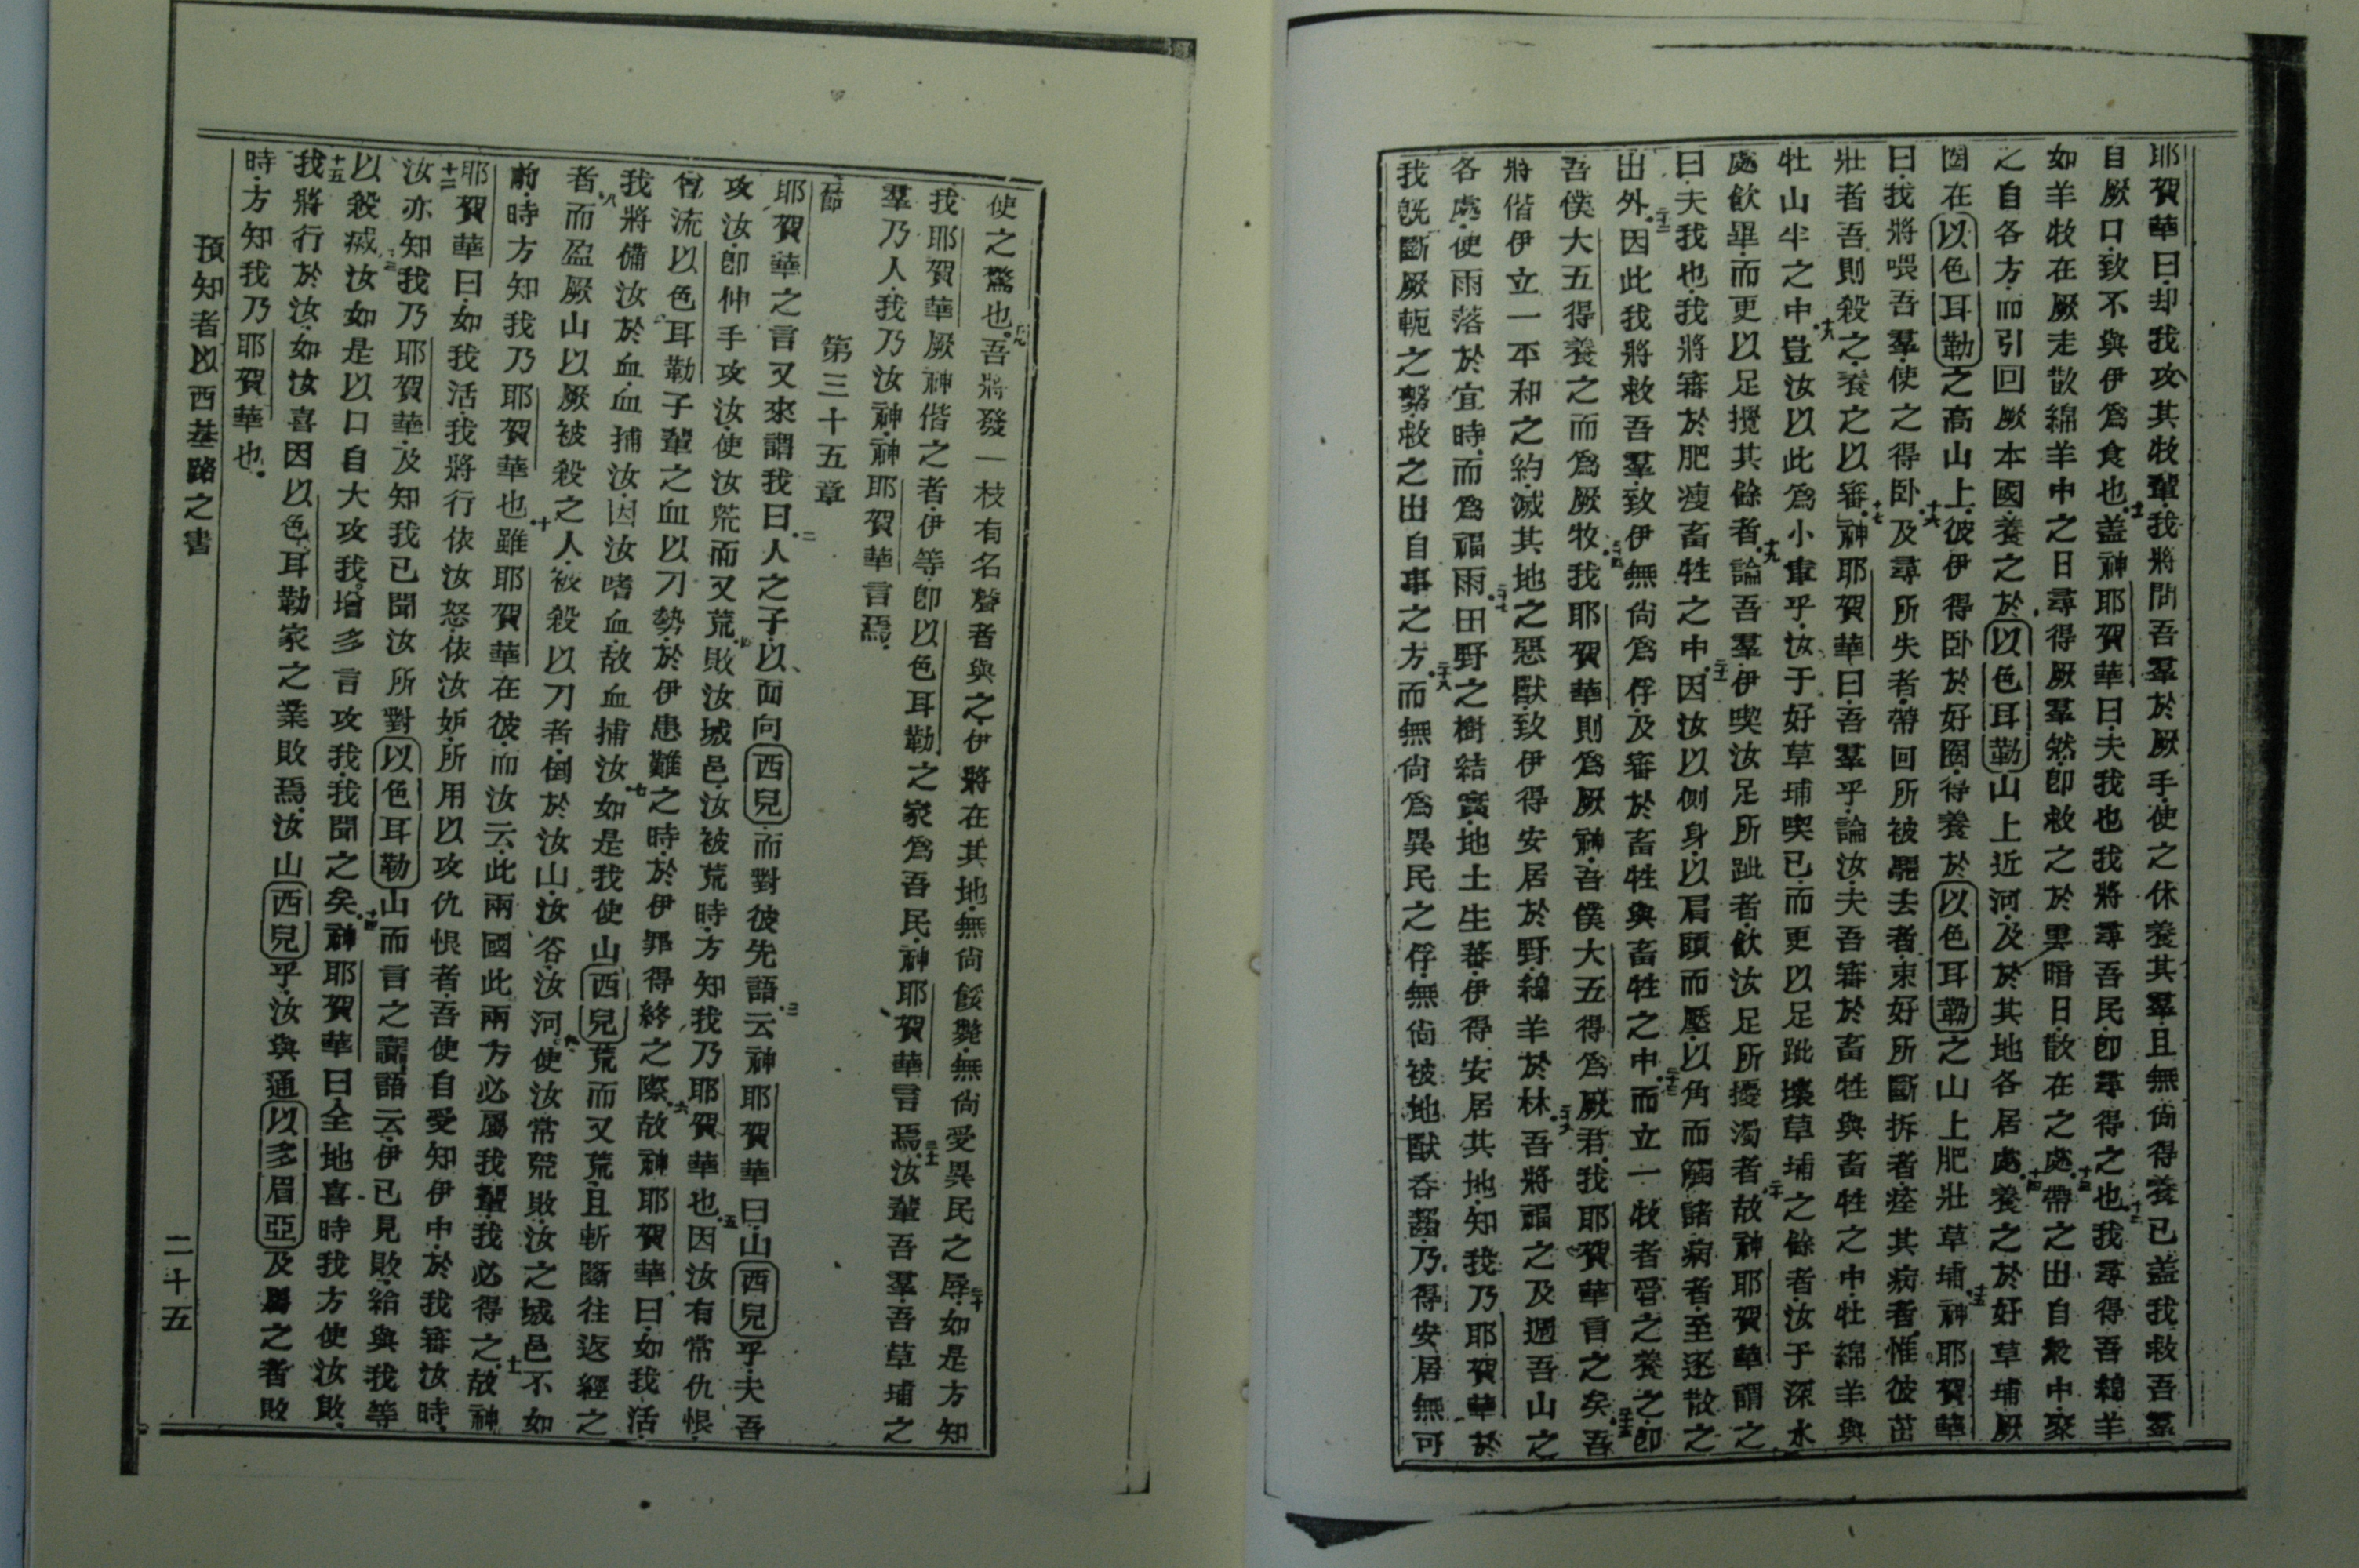 耶賀華曰却我攻其牧輩我將問吾羣於厥手使之休養其羣且無尙得養已盖我救吾羣
自厥口致不與伊爲食也十一盖神耶賀華曰夫我也我將尋吾民卽尋得之也十二我尋得吾綿羊
如羊牧在厥走散綿羊中之日尋得厥羣然卽救之於雲暗日散在之處十三帶之出自衆中聚
之自各方而引回厥本國養之於以色耳勒山上近河及於其地各居處十四養之於好草埔厥
圈在以色耳勒之高山上彼伊得卧於好圈得養於以色耳勒之山上肥壯草埔十五神耶賀華
曰我將喂吾羣使之得卧十六及尋所失者帶回所被驅去者束好所斷拆者痊其病者惟彼茁
壯者吾則殺之養之以審十七神耶賀華曰吾羣乎論汝夫吾審於畜牲與畜牲之中牡綿羊與
牡山羊之中十八豈汝以此爲小事乎汝于好草埔喫已而更以足跐壞草埔之餘者汝于深水
處飮畢而更以足攪其餘者十九論吾羣伊喫汝足所跐者飮汝足所擾濁者二十故神耶賀華謂之
曰夫我也我將審於肥瘦畜牲之中二十一因汝以側身以肩頭而壓以角而觸諸病者至逐散之
出外二十二因此我將救吾羣致伊無尙爲俘及審於畜牲與畜牲之中二十三而立一牧者管之養之卽
吾僕大五得養之而爲厥牧二十四我耶賀華則爲厥神吾僕大五得爲厥君我耶賀華言之矣二十五吾
將偕伊立一平和之約滅其地之惡獸致伊得安居於野綿羊於林二十六吾將福之及週吾山之
各處使雨落於宜時而爲福雨二十七田野之樹結實地土生蕃伊得安居其地知我乃耶賀華於
我旣斷厥軛之繫救之出自事之方二十八而無尙爲異民之俘無尙被地獸吞齧乃得安居無可
使之驚也二十九吾將發一枝有名聲者與之伊將在其地無尙餒斃無尙受異民之辱三十如是方知
我耶賀華厥神偕之者伊等卽以色耳勒之家爲吾民神耶賀華言焉三十一汝輩吾羣吾草埔之
羣乃人我乃汝神神耶賀華言焉
第三十五章
一節耶賀華之言又來謂我曰二人之子以面向西兒而對彼先語三云神耶賀華曰山西兒乎夫吾
攻汝卽伸手攻汝使汝荒而又荒四敗汝城邑汝被荒時方知我乃耶賀華也五因汝有常仇恨
曾流以色耳勒子輩之血以刀勢於伊患難之時於伊罪得終之際六故神耶賀華曰如我活
我將備汝於血血捕汝因汝嗜血故血捕汝七如是我使山西兒荒而又荒且斬斷往返經之
者八而盈厥山以厥被殺之人被殺以刀者倒於汝山汝谷汝河九使汝常荒敗汝之城邑不如
前時方知我乃耶賀華也十雖耶賀華在彼而汝云此兩國此兩方必屬我輩我必得之十一故神
耶賀華曰如我活我將行依汝怒依汝妒所用以攻仇恨者吾使自受知伊中於我審汝時
十二汝亦知我乃耶賀華及知我已聞汝所對以色耳勒山而言之讟語云伊已見敗給與我等
以殺滅十三汝如是以口自大攻我增多言攻我我聞之矣十四神耶賀華曰全地喜時我方使汝敗
十五我將行於汝如汝喜因以色耳勒家之業敗焉汝山西兒乎汝與通以多眉亞及屬之者敗
時方知我乃耶賀華也
預知者以西基路之書
二十五